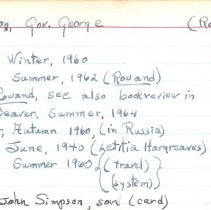 on, Gov. George (Ro
Winter, 1960
Summer, 1962 (Rowand)
Rowand, see also bookreview in
Beaver, Summer, 1964
Autumn 1960, (in Russia)
June, 1940 (Letitia Hargreaves)
Summer 1960, (travel)
(system)
John Simpson, son (card)